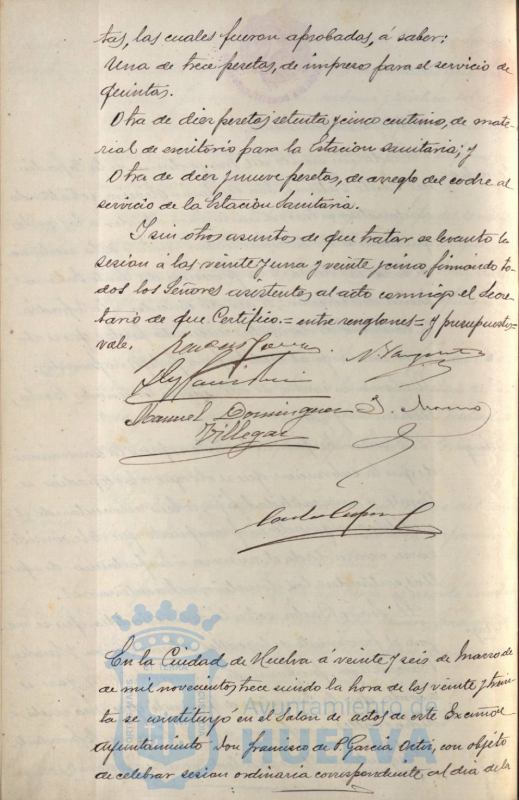 tas, las cuales fueron aprobadas, á saber:
Una de trece pesetas, de impresos para el servicio de
quintas.
Otra de diez pesetas setenta y cinco centimos, de mate-
rial de escritorio para la Estacion sanitaria; y
Otra de diez y nueve pesetas, de arreglo del coche al
servicio de la Estacion Sanitaria.
Y sin otros asuntos de que tratar se levantó la
sesion á las veinte y una y veinte y cinco firmando to-
dos los Señores asistentes al acto conmigo el Secre-
tario de que Certifico.= entre renglones= y presupuestos=
vale.
Manuel Dominguez J. Moreno
Villegas
En la Ciudad de Huelva á veinte y seis de Marzo de
de mil novecientos trece siendo la hora de las veinte y trein-
ta se constituyó en el Salon de actos de este Excmo
Ayuntamiento Don Francisco de P. Garcia Ortiz, con objeto
de celebrar sesion ordinaria correspondiente al dia de la
Ayuntamiento de
HUELVA